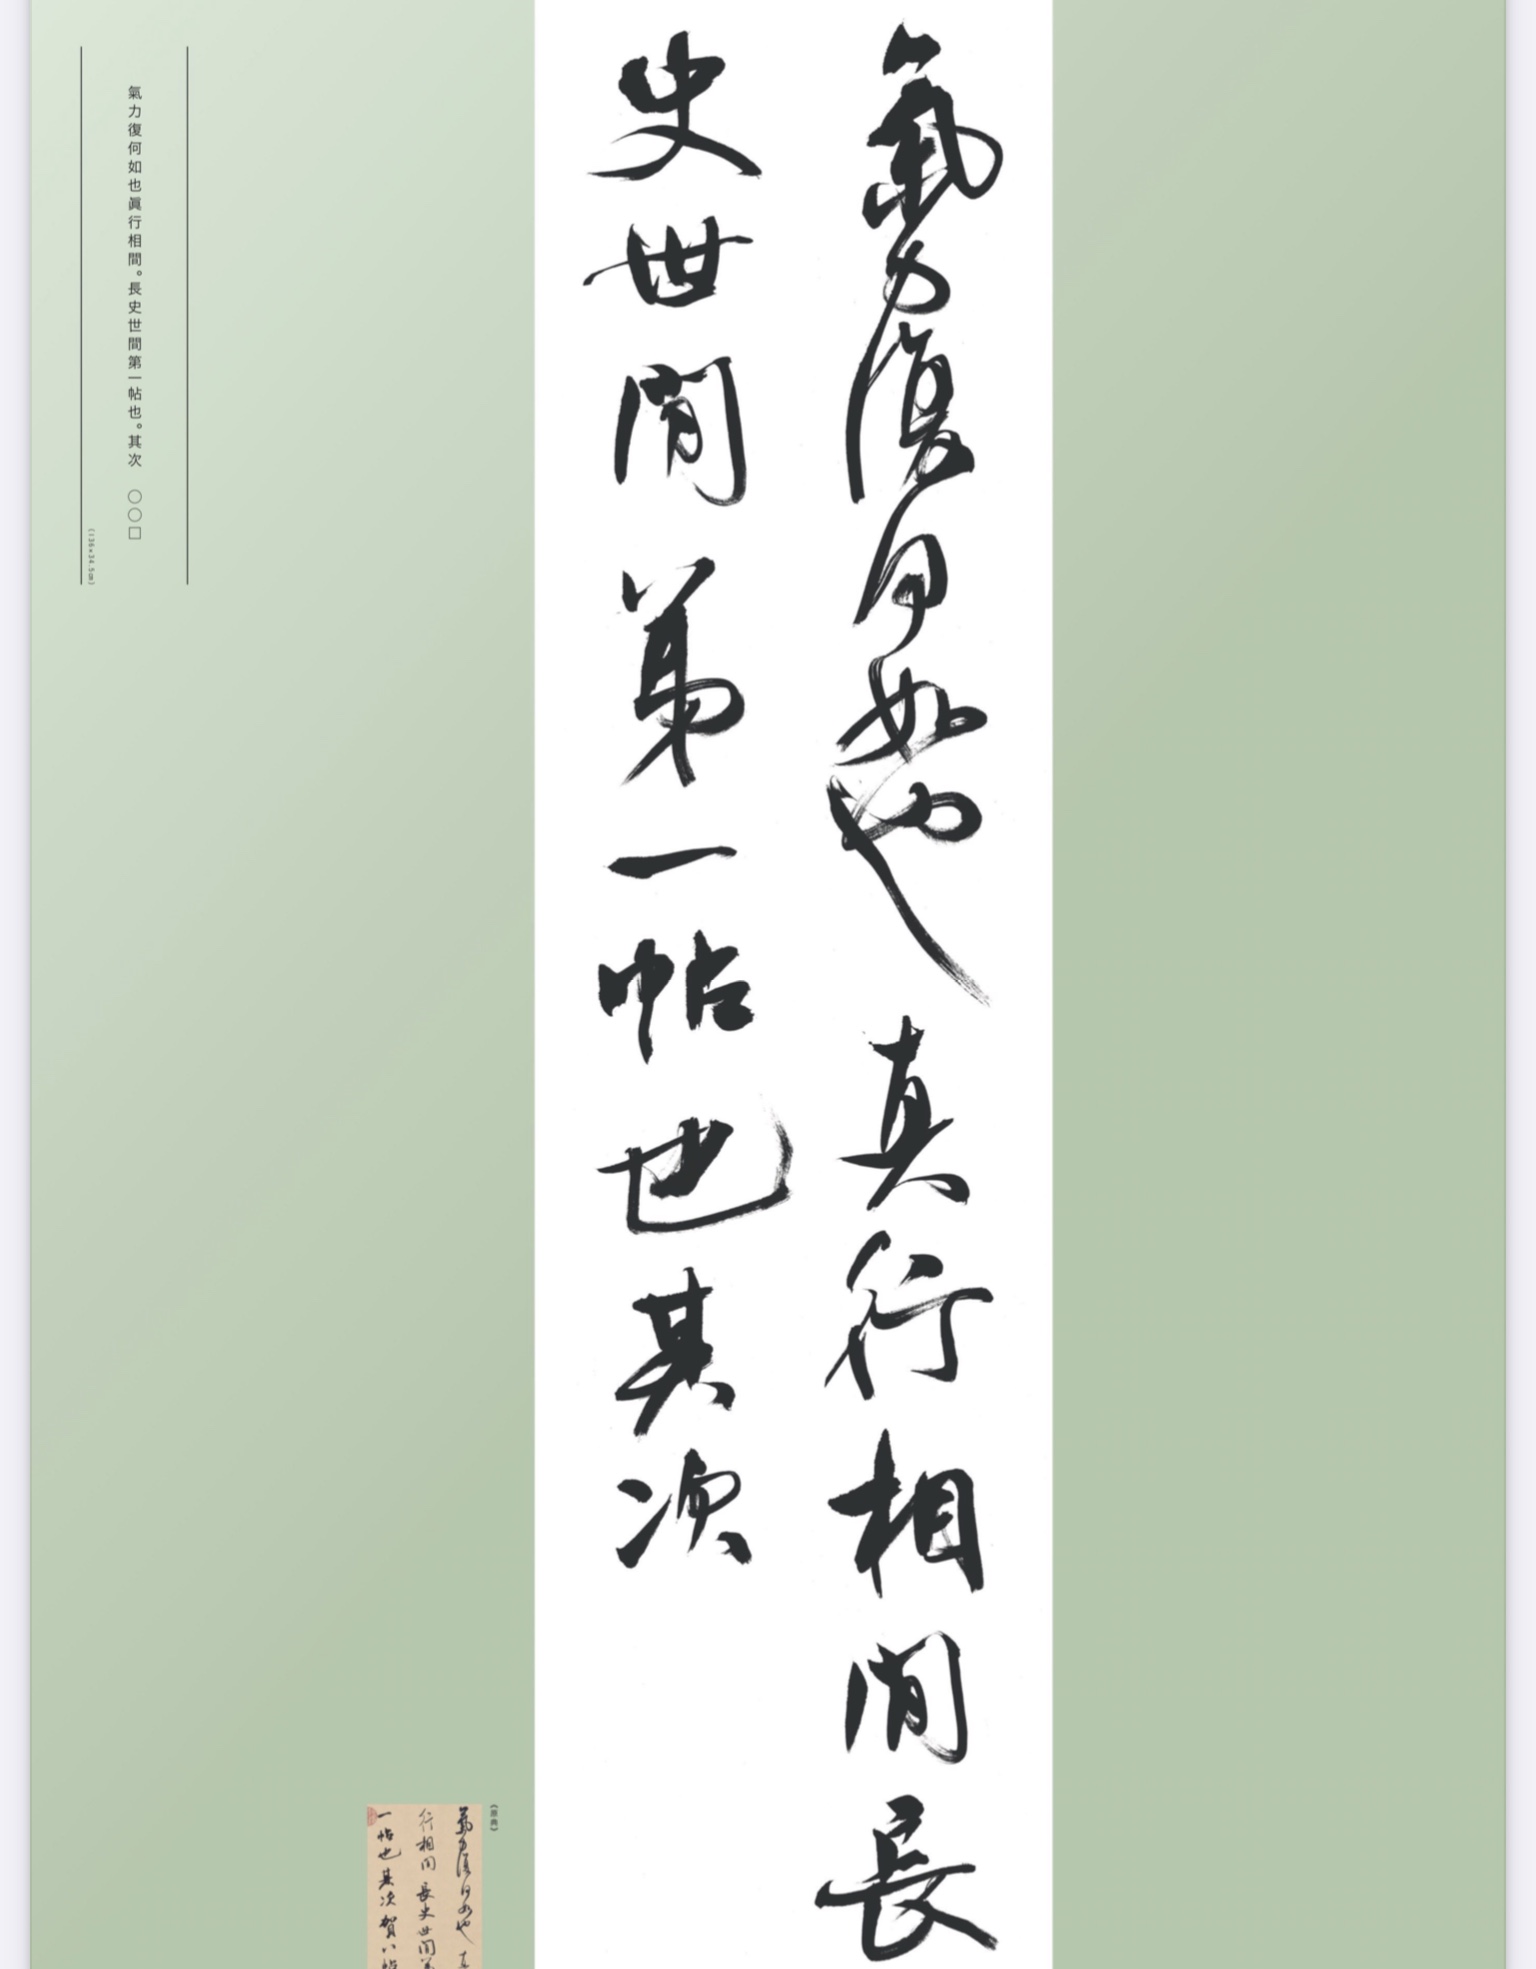 氣力復何如也真行相間長
史世間第一帖也其次
氣力復何如也眞行相間。長史世間第一帖也。其次　○○□
(136×34.5㎝)
《原典》
氣力復何如也 真
行相間 長史世間第
一帖也 其次賀八帖